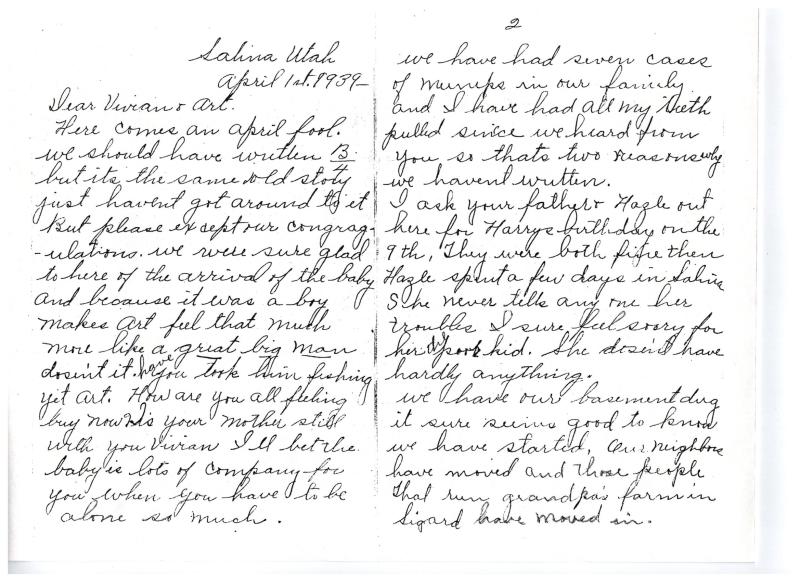 Salina Utah
April 1st. 1939-
Dear Vivian & Art.
Here comes an april fool.
we should have written B/4
but its the same old story
just havent got around to it
But please except our congrag-
-ulations. we were sure glad
to here of the arrival of the baby
and because it was a boy
makes Art feel that much
more like a great big man
dosen't it. have you took him fishing
yit art. How are you all feeling
buy now. Is your mother still
with you Vivian I'll bet the
baby is lots of company for
you when you have to be
alone so much.
2
we have had seven cases
of mumps in our family
and I have had all my teeth
pulled since we heard from
you so thats two reasons why
we havent written.
I ask your father & Hazle out
here for Harrys birthday on the
9th, They were both fine then
Hazle spent a few days in Salina
She never tells any one her
troubles I sure feel soory for
her poor kid. She dosen't have
hardly anything.
we have our basement dug
it sure seems good to know
we have started, Our neighbors
have moved and those people
that run grandpa's farm in
Sigard have moved in.